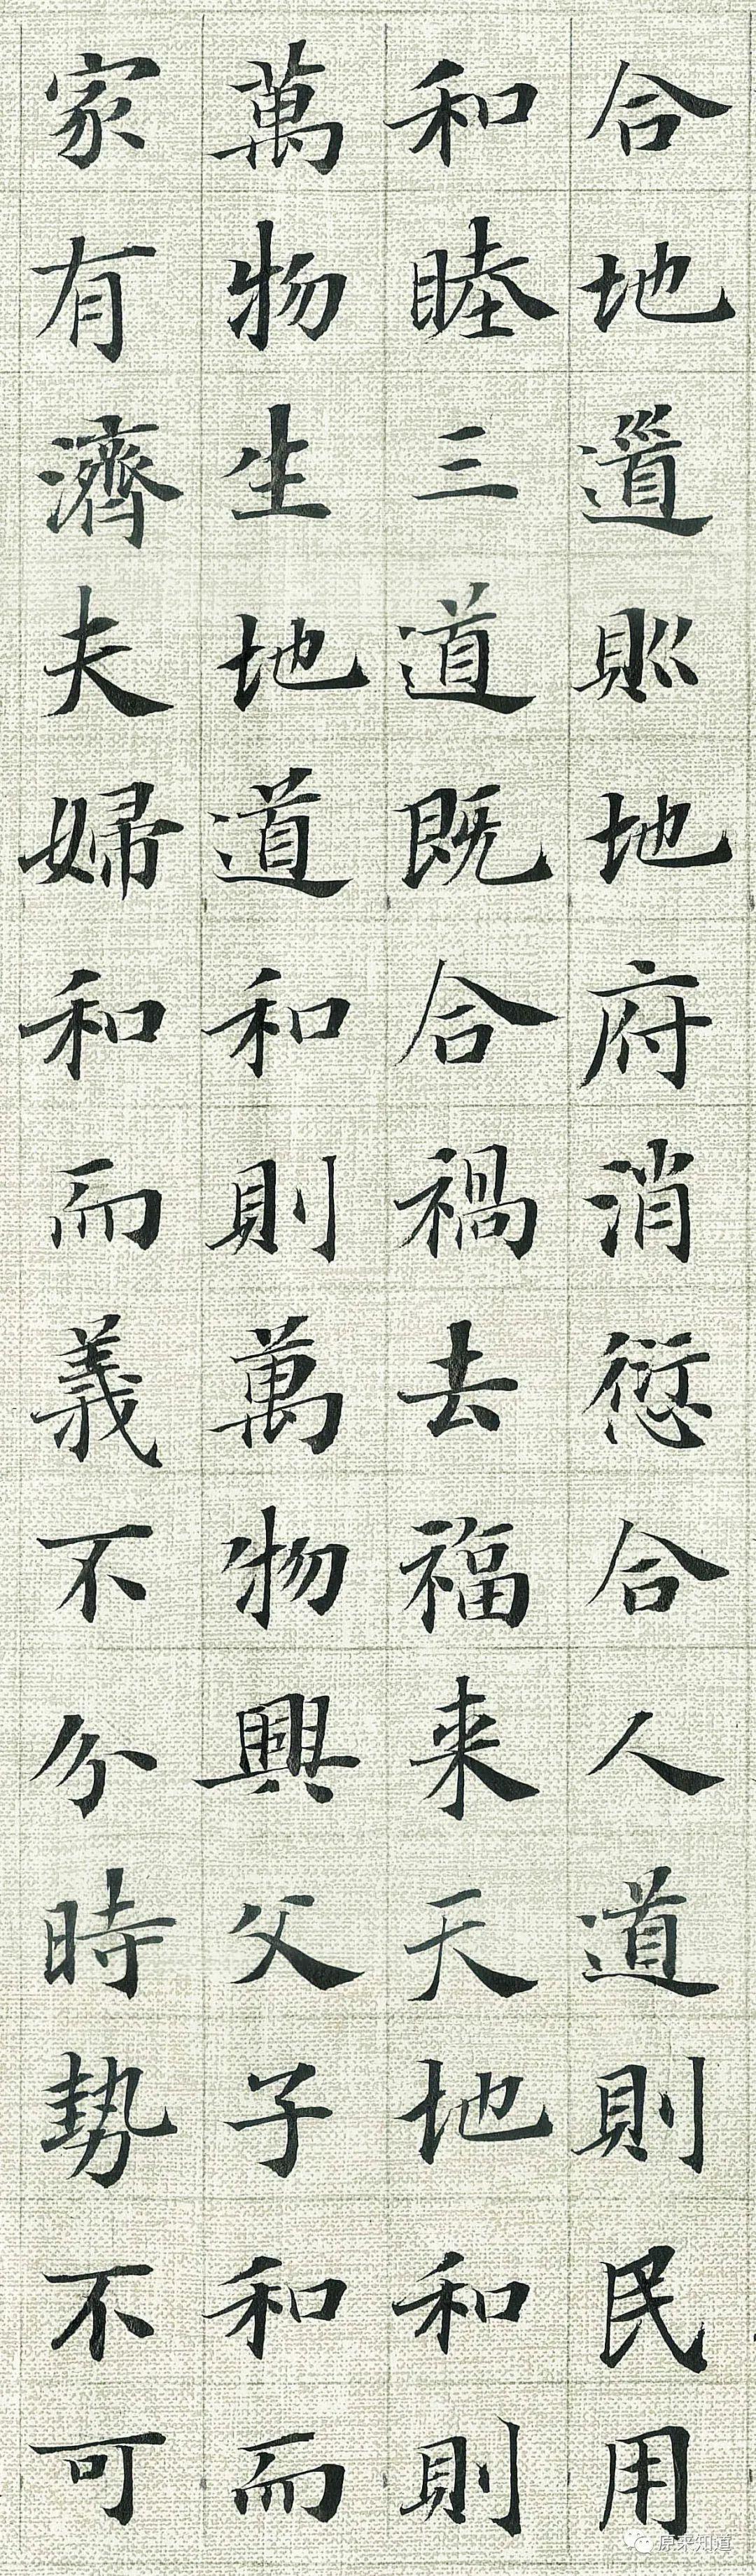 合地道則地府消愆合人道則民用
和睦三道既合禍去福来天地和則
萬物生地道和則萬物興父子和而
家有濟夫婦和而義不分時勢不可
原来知道